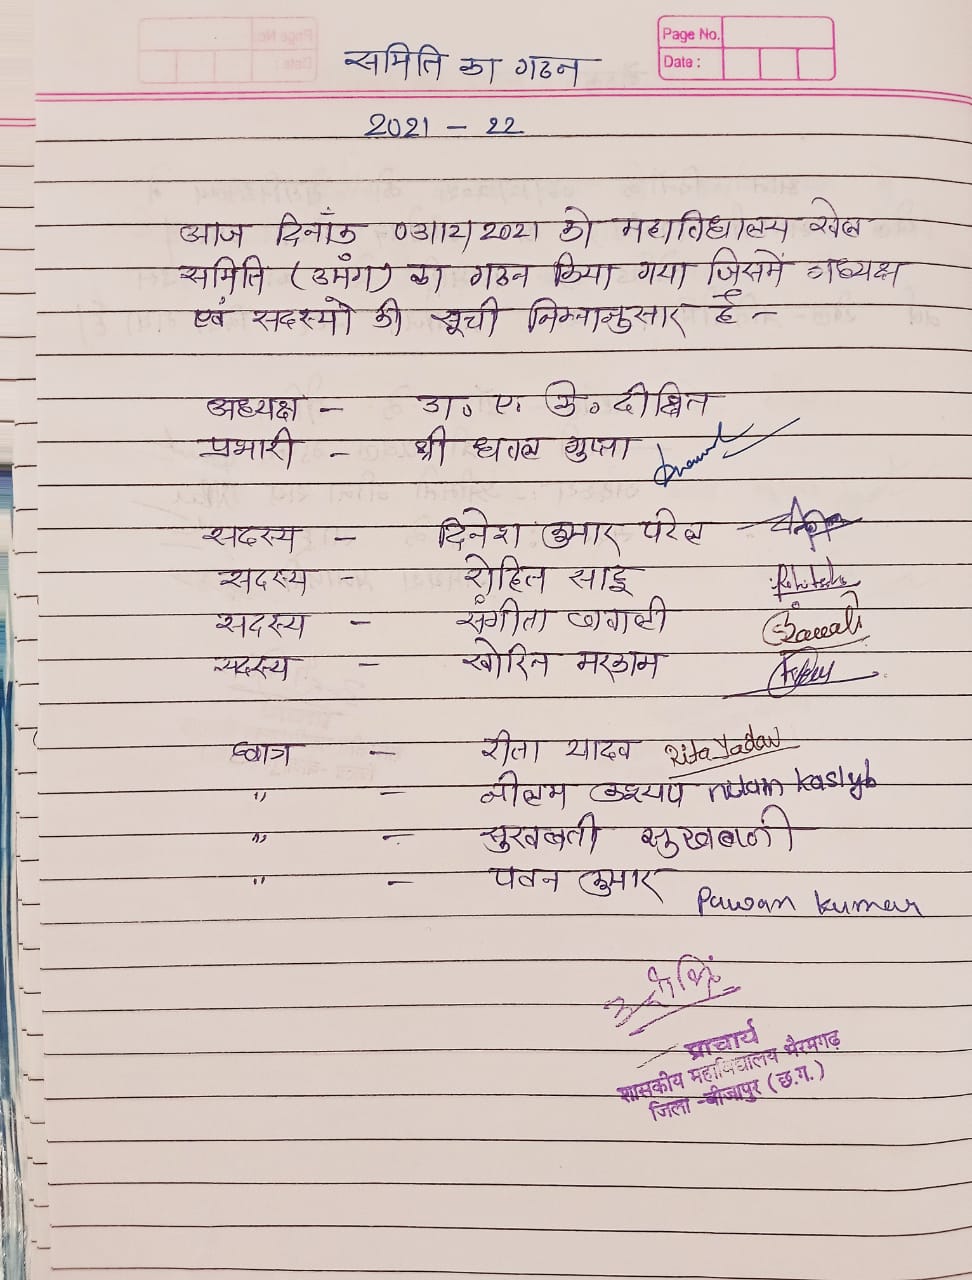 Page No.
Date :
समिति का गठन
2021 - 22
आज दिनाँक 2021 को महाविधालय खेल
समिति (उमंग) का गठन किया गया जिसमें अध्यक्ष
एवं सदस्यो की सूची निम्नानुसार है -
अध्यक्ष - डा. ए. के. दीक्षित
प्रभारी - श्री धवल गुप्ता
सदस्य - दिनेश कुमार पटेल
सदस्य - रोहित साहू
सदस्य - संगीता
सदस्य - खोरिन मरकाम
छात्र - रीता यादव Rita Yadav
" - नीलम कश्यप
" - सुखबती सुखबती
" - पवन कुमार
Pawan kumar
प्राचार्य
शासकीय महाविद्यालय भैरमगढ़
जिला -बीजापुर (छ.ग.)